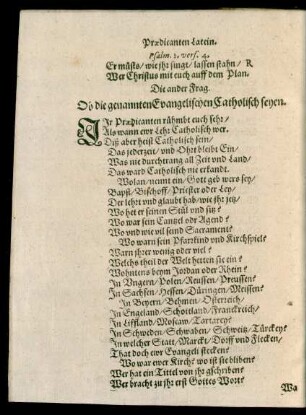 Prædicanten Latein.
Psalm. 2. vers. 4.
Er müsts/ wie jhr singt/ lassen stahn/ R
Wer Christus mit euch auff dem Plan.
Die ander Frag.
Ob die genannten Evangelischen Catholisch seyen.
Ir Prædicanten rühmbt euch sehr/
Als wann ewr Lehr Catholisch wer.
Diß aber heist Catholisch sein/
Das jederzeit/ und Ohrt bleibt Ein/
Was nie durchtrang all Zeit und Land/
Das ward Catholisch nie erkandt.
Wolan/ nennt ein/ Gott geb wers sey/
Bapst/ Bischoff/ Priester oder Ley/
Der lehrt und glaubt hab/ wie jhr jetz/
Wo het er seinen Stůl und sitz?
Wo war sein Cantzel odr Agend?
Wo und wie vil sennd Sacrament?
Wo warn sein Pfarkind und Kirchspiel?
Warn jhrer wenig oder viel?
Welchs theil der Welt hetten sie ein?
Wohntens beym Jordan oder Rhein?
In Ungern/ Polen/ Reussen/ Preussen?
In Sachsen/ Hessen/ Düringen/ Meissen?
In Beyern/ Behmen/ Osterreich/
In Engeland/ Schottland/ Franckreich/
In Liffland/ Moscaw/ Tartarey?
In Schweden/ Schwaben/ Schweitz/ Türckey?
In welcher Statt/ Marckt/ Dorff und Flecken/
That doch ewr Evangeli stecken?
Wo war ewer Kirch? wo ist sie blibene?
Wer hat ein Tittel von jhr gschribene?
Wer bracht zu jhr erst Gottes Wort?
Wa